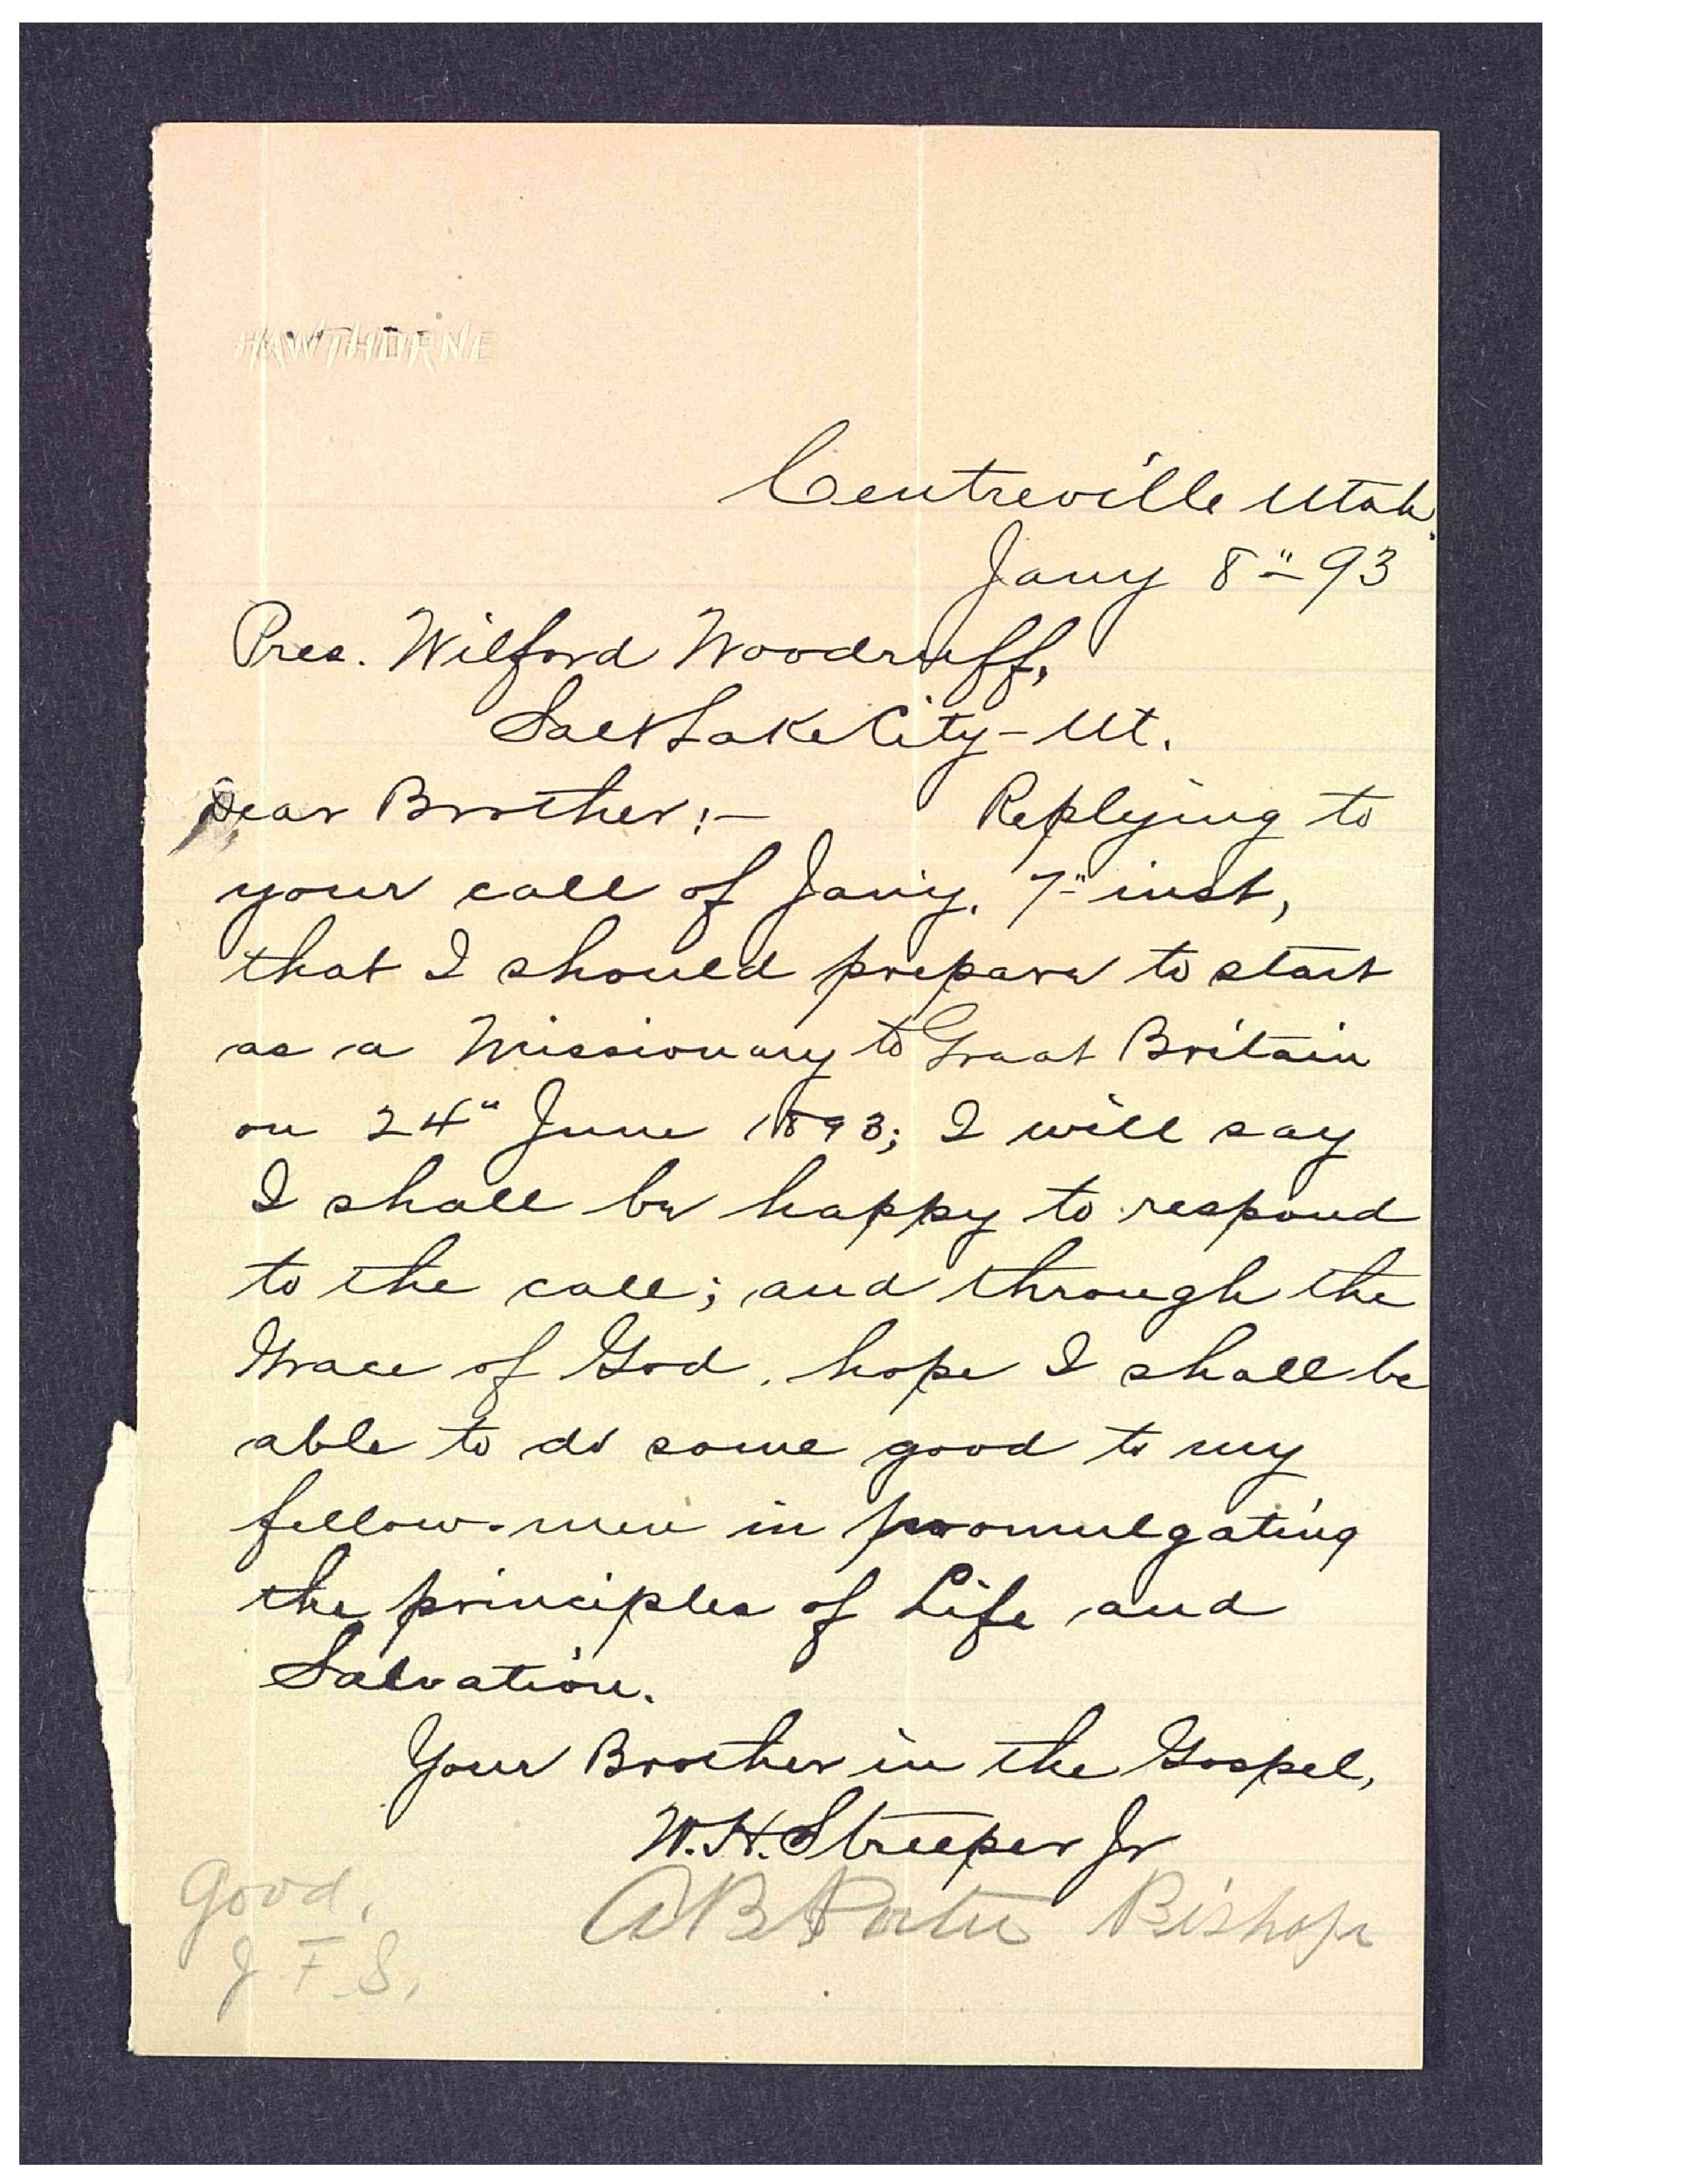 HAWTHORNE
Centreville Utah.
Jany 8" - 93
Pres. Wilford Woodruff,
Salt Lake City - Ut.
Dear Brother:- Replying to
your call of Jany. 7" inst,
that I should prepare to start
as a Missionary to Great Britain
on 24" June 1893; I will say
I shall be happy to respond
to the call; and through the
Grace of God, hope I shall be
able to do some good to my
fellow-men in promulgating
the principles of Life and
Salvation.
Your Brother in the Gospel,
W.H. Streeper Jr
A B Porter Bishop
Good,
J F S,